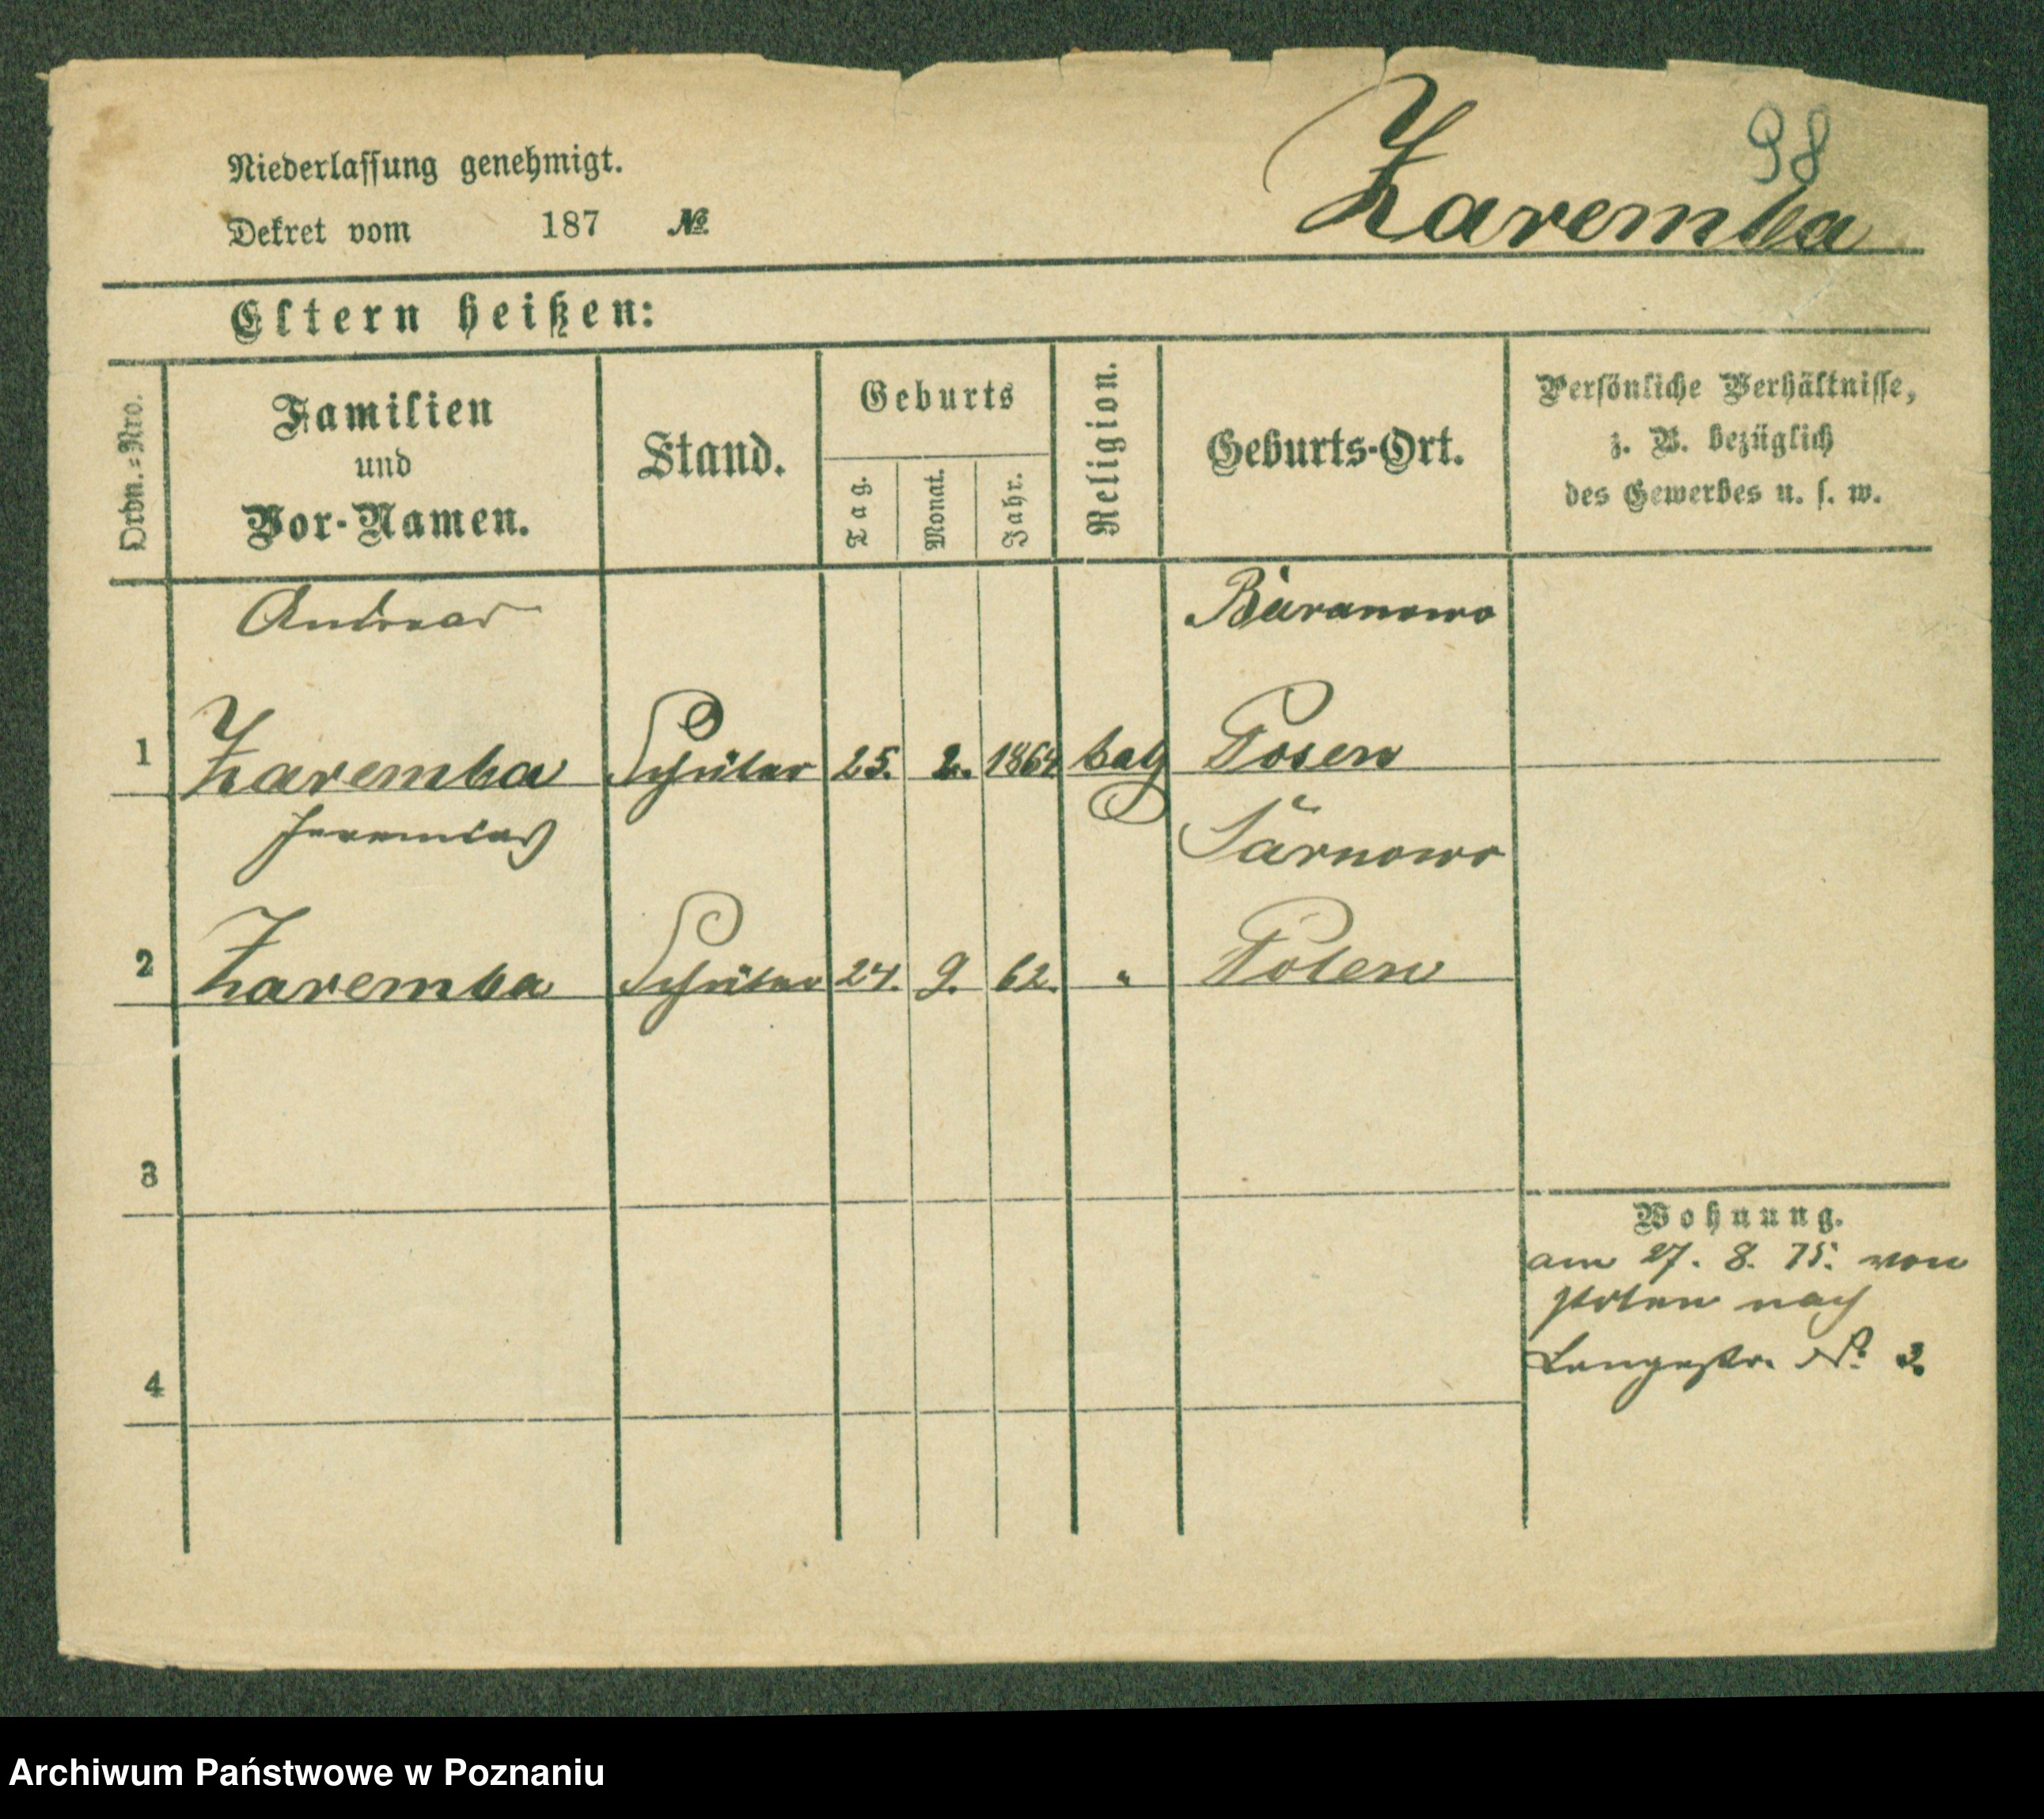 98
Zaremba
Niederlassung genehmigt.
Dekret vom 187 №
Eltern heißen:
Ordn.=Nro.
Familien
und
Vor-Namen.
Stand.
Geburts
Tag.
Monat.
Jahr.
Religion.
Geburts-Ort.
Persönliche Verhältnisse,
z. B. bezüglich
des Gewerbes u. s. w.
Andreas Baranowo
1 Zaremba Schüler 25. 2. 1864 Posen
Sarnowo
2 Zaremba Schüler 24. 9. 62. " Polen
3
Wohnung.
am 27. 8. 75. von
Polen nach
Langestr. N° 3.
4
Archiwum Państwowe w Poznaniu